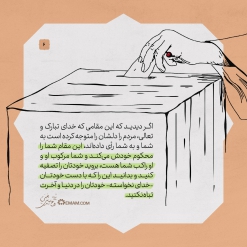 ۶
اگر دیدید که این مقامی که خدای تبارک و
تعالی، مردم را دلشان را متوجه کرده است به
شما و به شما رأی داده‌اند، این مقام شما را
محکوم خودش می‌کند و شما مرکوب او و
او راکب شما هست، بروید خودتان را تصفیه
کنید و بدانید این را که با دست خودتان
-خدای نخواسته- خودتان را در دنیا و آخرت
تباه نکنید.
EMAM.COM